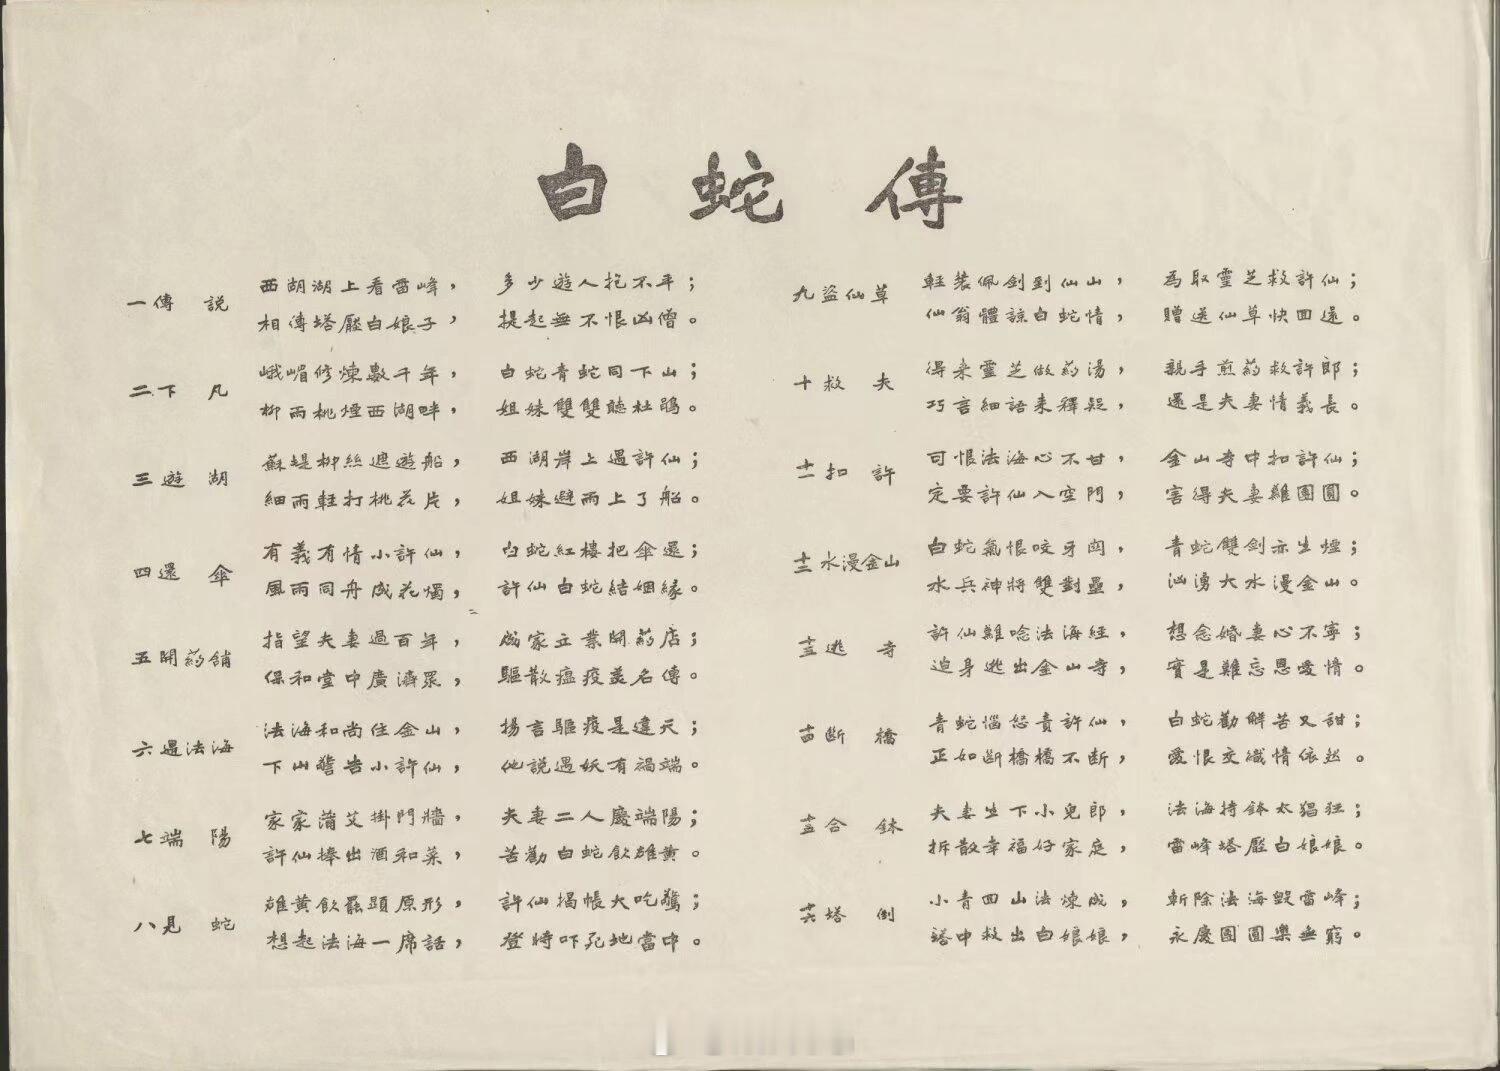 白蛇傳
一傳說
西湖湖上看雷峰，多少遊人抱不平；
相傳塔壓白娘子，提起無不恨凶僧。
二下凡
峨嵋修煉數千年，白蛇青蛇同下山；
柳雨桃煙西湖畔，姐妹雙雙聽杜鵑。
三遊湖
蘇堤柳絲遮遊船，西湖岸上遇許仙；
細雨輕打桃花片，姐妹避雨上了船。
四還傘
有義有情小許仙，白蛇紅樓把傘還；
風雨同舟成花燭，許仙白蛇結姻緣。
五開药鋪
指望夫妻過百年，成家立業開药店；
保和堂中廣濟眾，驅散瘟疫美名傳。
六遇法海
法海和尚住金山，揚言驅疫是違天；
下山警告小許仙，他說遇妖有禍端。
七端陽
家家蒲艾掛門牆，夫妻二人慶端陽；
許仙捧出酒和菜，苦勸白蛇飲雄黄。
八見蛇
雄黄飲罷顯原形，許仙揭帳大吃驚；
想起法海一席話，登時吓死地當中。
九盜仙草
輕裝佩劍到仙山，為取靈芝救許仙；
仙翁體諒白蛇情，贈送仙草快回還。
十救夫
得来靈芝做药湯，親手煎药救許郎；
巧言細語来釋疑，還是夫妻情義長。
十一扣許
可恨法海心不甘，金山寺中扣許仙；
定要許仙入空門，害得夫妻難團圓。
十二水漫金山
白蛇氣恨咬牙關，青蛇雙劍亦生煙；
水兵神將雙對壘，汹湧大水漫金山。
十三逃寺
許仙難唸法海經，想念婚妻心不寧；
迫身逃出金山寺，實是難忘恩愛情。
十四斷橋
青蛇惱怒責許仙，白蛇勸解苦又甜；
正如斷橋橋不断，愛恨交織情依然。
十五合鉢
夫妻生下小兒郎，法海持鉢太猖狂；
拆散幸福好家庭，雷峰塔壓白娘娘。
十六塔倒
小青回山法煉成，斬除法海毀雷峰；
塔中救出白娘娘，永慶團圓樂無窮。